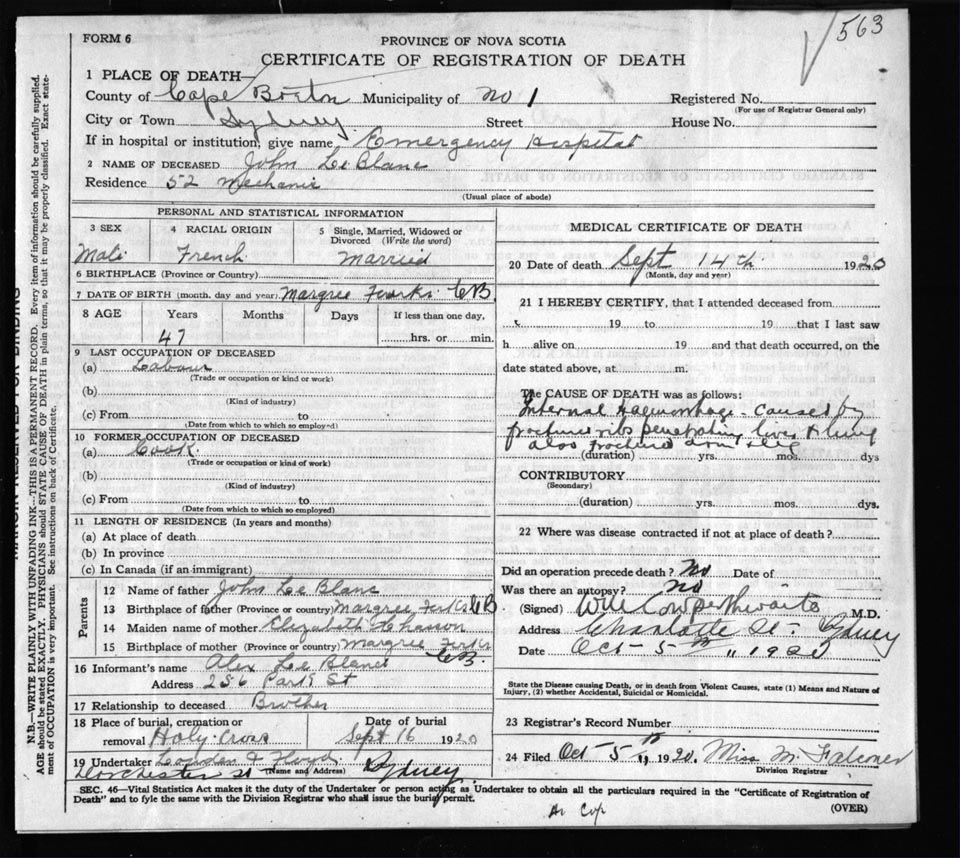 563
FORM 6
PROVINCE OF NOVA SCOTIA
CERTIFICATE OF REGISTRATION OF DEATH
1 PLACE OF DEATH—
County of Cape Breton Municipality of No 1 Registered No.
(For use of Registrar General only)
City or Town Sydney. Street House No.
If in hospital or institution, give name Emergency Hospital
2 NAME OF DECEASED John Le Blanc
Residence 52 Mechanic
(Usual place of abode)
PERSONAL AND STATISTICAL INFORMATION
3 SEX 4 RACIAL ORIGIN 5 Single, Married, Widowed or Divorced (Write the word)
Male French Married
6 BIRTHPLACE (Province or Country)
7 DATE OF BIRTH (month, day and year) Margree Forks. C.B.
8 AGE Years Months Days If less than one day,
47 hrs. or min.
9 LAST OCCUPATION OF DECEASED
(a) Labour
(Trade or occupation or kind or work)
(b)
(Kind of industry)
(c) From to
(Date from which to which so employed)
10 FORMER OCCUPATION OF DECEASED
(a) Cook.
(Trade or occupation or kind or work)
(b)
(Kind of industry)
(c) From to
(Date from which to which so employed)
11 LENGTH OF RESIDENCE (In years and months)
(a) At place of death
(b) In province
(c) In Canada (if an immigrant)
Parents
12 Name of father John Le Blanc
13 Birthplace of father (Province or country) Margree Forks CB
14 Maiden name of mother Elizabeth Chasson
15 Birthplace of mother (Province or country) Margree Forks
CB.
16 Informant's name Alex Le Blanc
Address 256 Park St
17 Relationship to deceased Brother
18 Place of burial, cremation or Date of burial
removal Holy Cross Sept 16 1920
19 Undertaker & Floyd
Dorchester St (Name and Address) Sydney.
MEDICAL CERTIFICATE OF DEATH
20 Date of death Sept 14th 1920
(Month, day and year)
21 I HEREBY CERTIFY, that I attended deceased from
19 to 19 that I last saw
h alive on 19 and that death occurred, on the
date stated above, at m.
The CAUSE OF DEATH was as follows:
Internal Haemorrhage - caused by
fractured ribs penetrating liver & lung
also fractured arm & leg
(duration) yrs. mos. dys
CONTRIBUTORY
(Secondary)
(duration) yrs. mos. dys.
22 Where was disease contracted if not at place of death?
Did an operation precede death? No Date of
Was there an autopsy? No
(Signed) Cowperthwaite M.D.
Address Charlotte St. Sydney
Date Oct 5th 1920
State the Disease causing Death, or in death from Violent Causes, state (1) Means and Nature of
Injury, (2) whether Accidental, Suicidal or Homicidal.
23 Registrar's Record Number
24 Filed Oct 5th 1920. Miss M. Falconer
Division Registrar
SEC. 46—Vital Statistics Act makes it the duty of the Undertaker or person acting as Undertaker to obtain all the particulars required in the "Certificate of Registration of
Death" and to fyle the same with the Division Registrar who shall issue the burial permit.
(OVER)
MARGIN RESERVED FOR BINDING
N.B.—WRITE PLAINLY WITH UNFADING INK—THIS IS A PERMANENT RECORD. Every item of information should be carefully supplied.
AGE should be stated EXACTLY. PHYSICIANS should STATE CAUSE OF DEATH in plain terms, so that it may be properly classified. Exact state-
ment of OCCUPATION is very important. See instructions on back of Certificate.